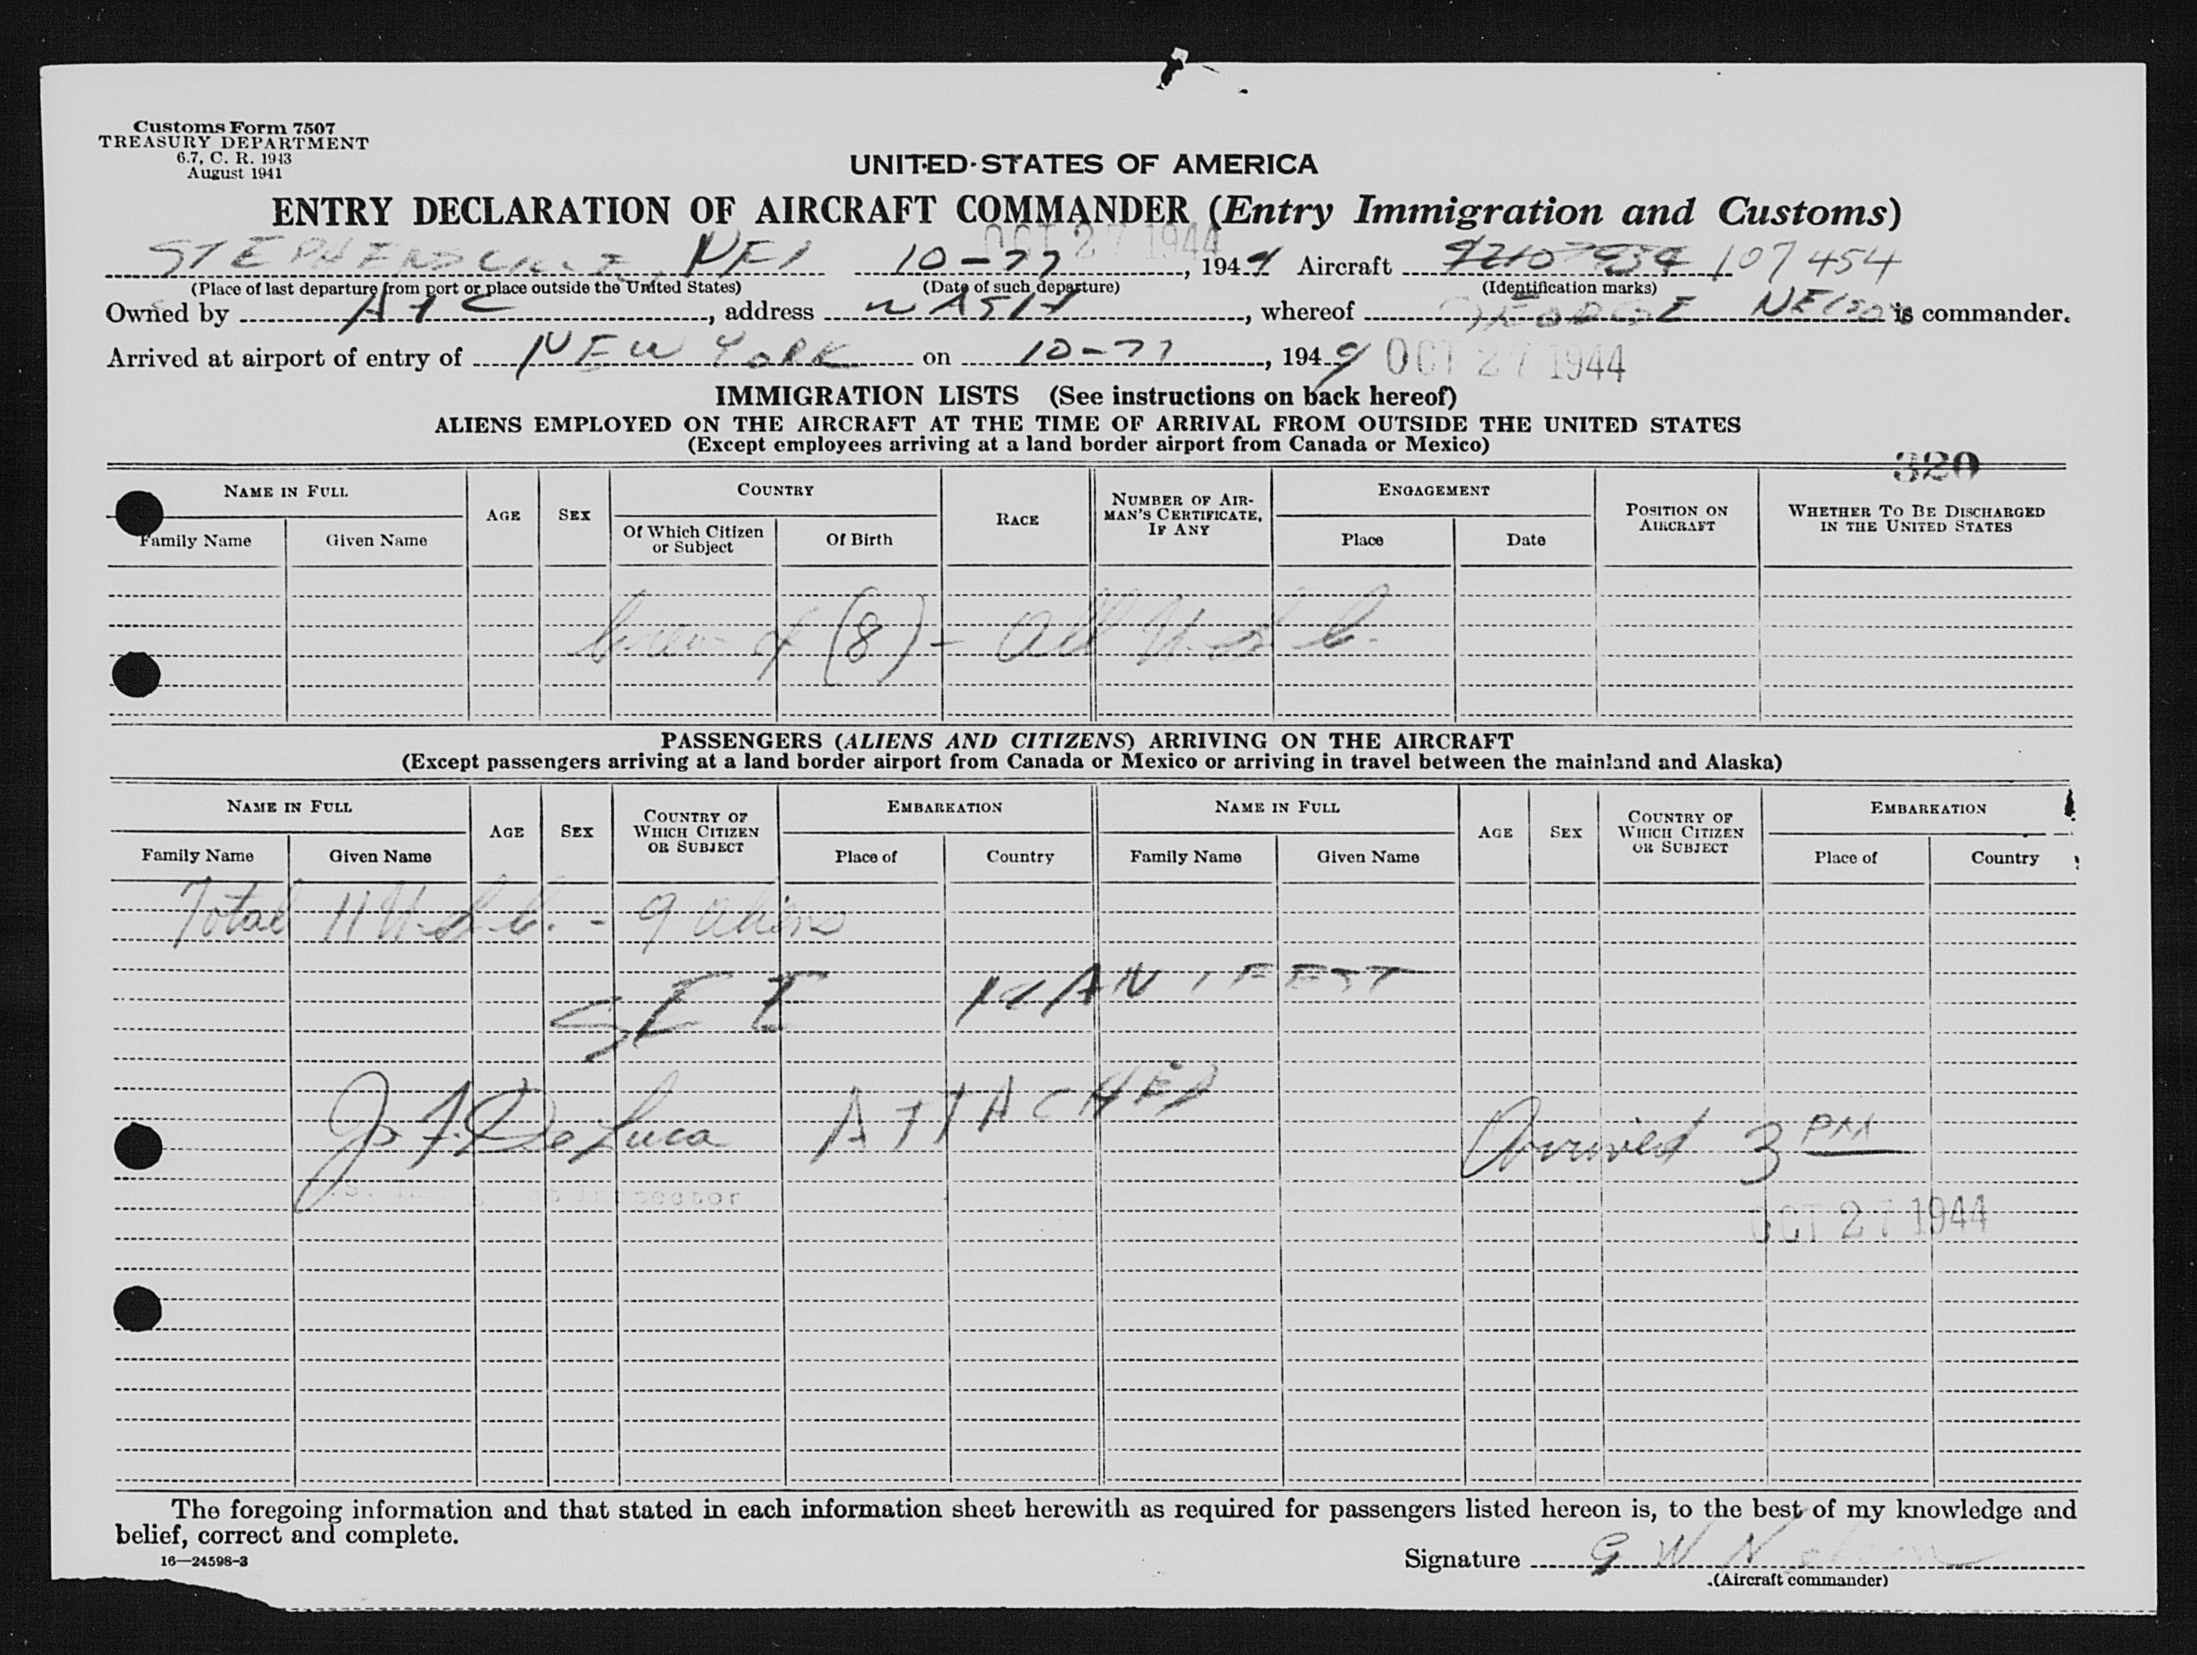 Customs Form 7507
TREASURY DEPARTMENT
6.7, C. R. 1943
August 1941
UNITED STATES OF AMERICA
ENTRY DECLARATION OF AIRCRAFT COMMANDER (Entry Immigration and Customs)
OCT 27 1944
STEPHENSVILLE, NFD 10-27, 1944 Aircraft 107454
(Place of last departure from port or place outside the United States) (Date of such departure) (Identification marks)
Owned by ATC, address WASH, whereof GEORGE NELSON is commander.
Arrived at airport of entry of NEW YORK on 10-27, 1944 OCT 27 1944
IMMIGRATION LISTS (See instructions on back hereof)
ALIENS EMPLOYED ON THE AIRCRAFT AT THE TIME OF ARRIVAL FROM OUTSIDE THE UNITED STATES
(Except employees arriving at a land border airport from Canada or Mexico)
320
NAME IN FULL AGE SEX COUNTRY RACE NUMBER OF AIRMAN'S CERTIFICATE, IF ANY ENGAGEMENT POSITION ON AIRCRAFT WHETHER TO BE DISCHARGED IN THE UNITED STATES
Family Name Given Name Of Which Citizen or Subject Of Birth Place Date
Crew of (8) - All U.S.C.
PASSENGERS (ALIENS AND CITIZENS) ARRIVING ON THE AIRCRAFT
(Except passengers arriving at a land border airport from Canada or Mexico or arriving in travel between the mainland and Alaska)
NAME IN FULL AGE SEX COUNTRY OF WHICH CITIZEN OR SUBJECT EMBARKATION NAME IN FULL AGE SEX COUNTRY OF WHICH CITIZEN OR SUBJECT EMBARKATION
Family Name Given Name Place of Country Family Name Given Name Place of Country
Total 11 U.S.C. - 9 Aliens
SEE MANIFEST
J. F. De Luca ATTACHED Arrived 3 PM
Inspector
OCT 27 1944
The foregoing information and that stated in each information sheet herewith as required for passengers listed hereon is, to the best of my knowledge and
belief, correct and complete.
16—24598-3
Signature G W Nelson
(Aircraft commander)